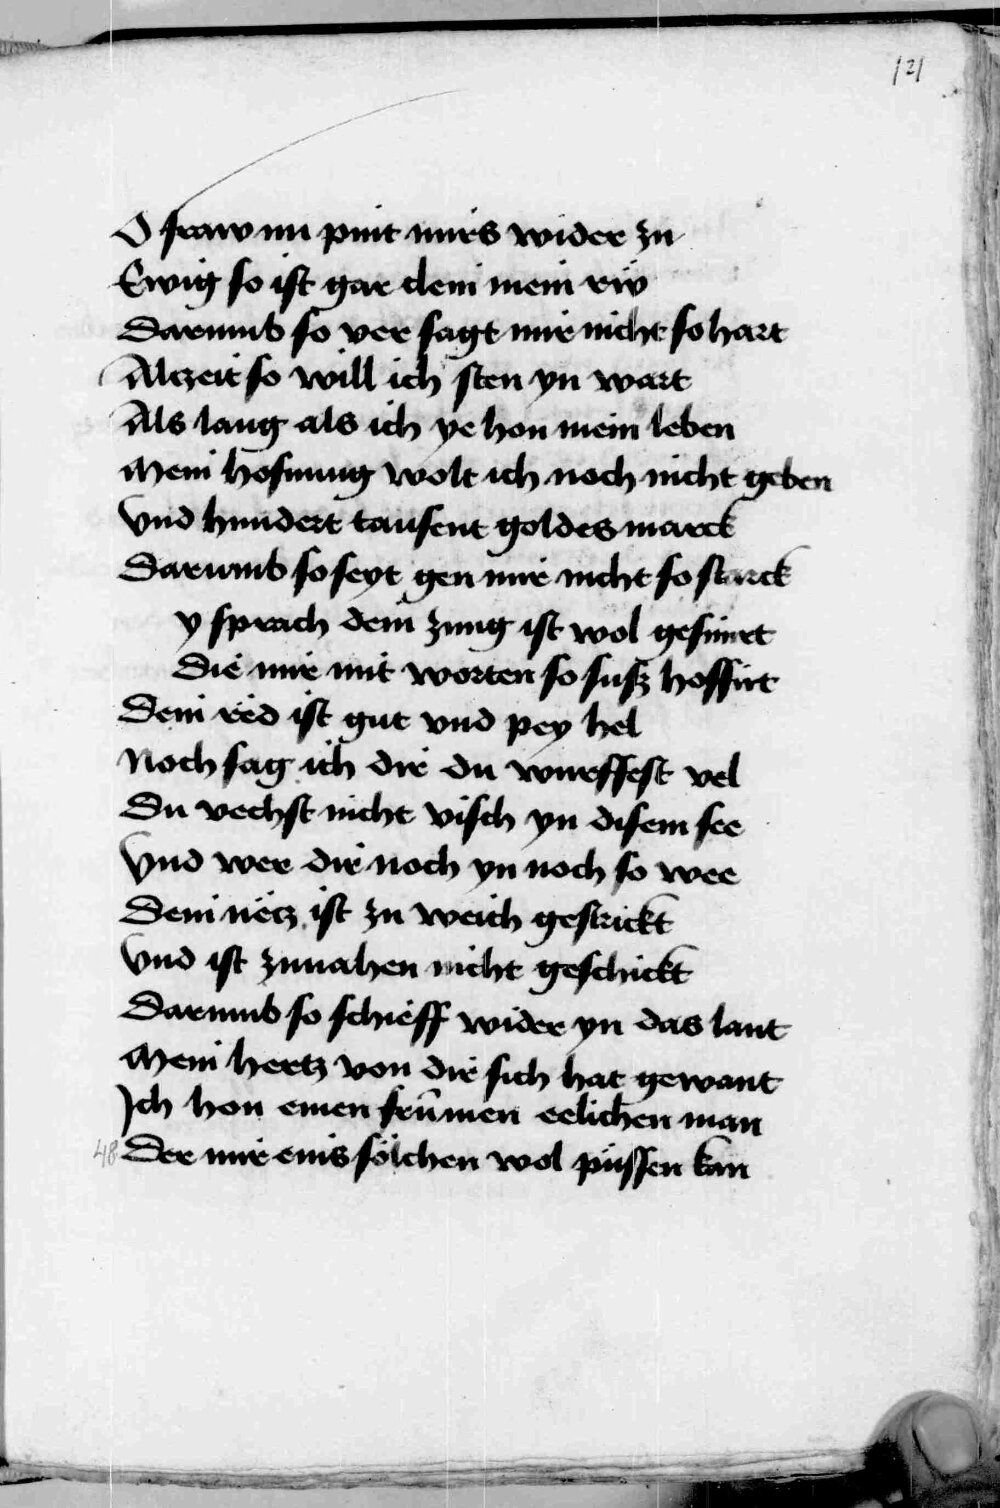 121
O fraw nu pint mirs wider zu
Ewig so ist gar clein mein rŵ
Darumb so ver sagt mir nicht so hart
Alczeit so will ich sten yn wart
Als lang als ich ye hon mein leben
Mein hofnung wolt ich noch nicht geben
Vnd hundert tausent goldes marck
Darumb so seyt gen mir nicht so starck
y sprach dein zung ist wol gesmirt
Die mir mit worten so susz hoffirt
Dein red ist gut vnd pey hel
Noch sag ich dir du wurffest vel
Du vechst nicht visch yn disem see
Vnd wer dir noch yn noch so wee
Dein necz ist zu weich gestrickt
Vnd ist zunahen nicht geschickt
Darumb so schieff wider yn das lant
Mein hertz von dir sich hat gewant
Ich hon einen frumen eelichen man
48 Der mir eins sölchen wol püssen kan